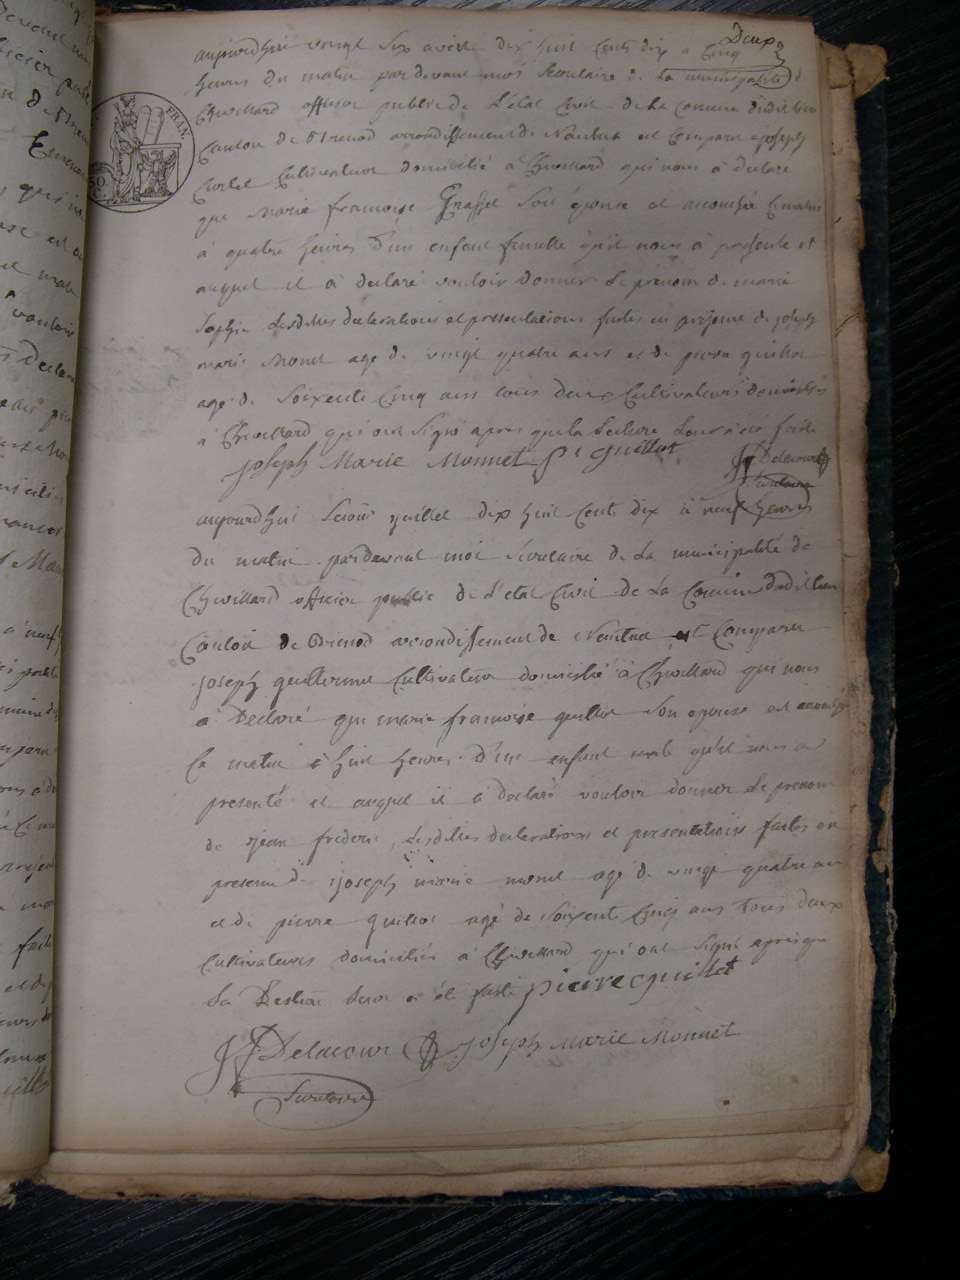 Deux
aujourdhui vingt six avril dix huit Cents dix a Cinq
heures du matin par devant moi Secretaire de La municipalité d
Chevillard officier public de L'état Civil de La Comune dudit lieu
Canton de Brenod arrondissement de Nantua est Comparu joseph
Curtet Cultivateur domicilié a Chevillard qui nous a declaré
que marie francoise Grasset son épouse et accouchée Ce matin
a quatre heures d'un enfant femelle qu'il nous a présenté et
auquel il a declaré vouloir donner Le prenom de marie
Sophie Lesdittes declarations et presentations faites en présence de joseph
marie Monet age de vingt quatre ans et de pierre guillot
agé de Soixente Cinq ans tous deux Cultivateurs domiciliés
a Chevillard qui ont Signé apres que la Lecture Leur a été faite
joseph Marie Monnet pr guillot Delacour
Secretaire
aujourdhui juillet dix huit Cents dix à neuf heures
du matin pardevant moi Secretaire de La municipalité de
Chevillard officier public de L'etat Civil de La Comune dudit lieu
Canton de Brenod arrondissement de Nantua est Comparu
joseph guillermet Cultivateur domicilié à Chevillard qui nous
a Declaré que marie francoise guillot Son epouse est accouchée
Ce matin à huit heures d'un enfant male qu'il nous a
presenté et auquel il a declaré vouloir donner Le prenom
de jean frederic, Lesdittes declarations et presentations faites en
presence de joseph marie monet age de vingt quatre ans
et de pierre guillot agé de Soixente Cinq ans Tous deux
Cultivateurs domiciliés à Chevillard qui ont Signé apres que
La Lecture Leur a été faite pierre guillot
Delacour joseph Marie Monnet
Secretaire